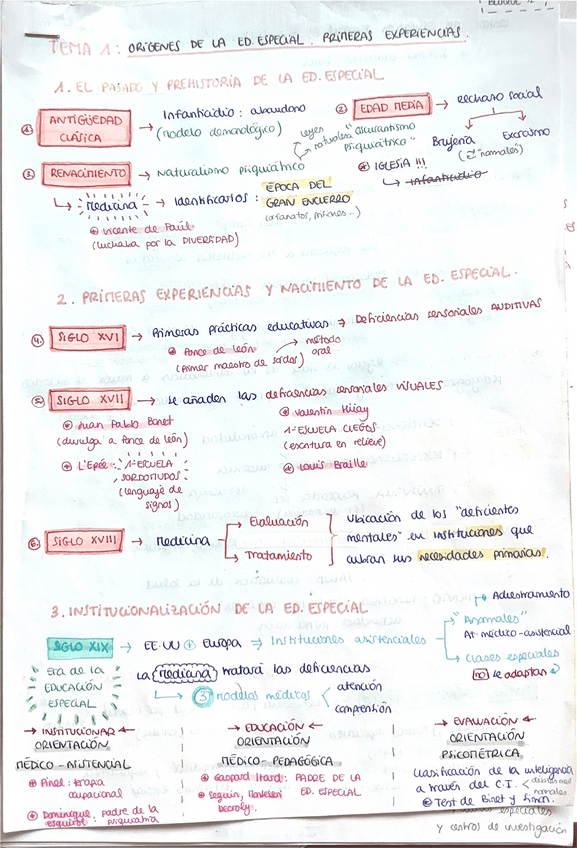 BLOQUE 2
TEMA 1: ORÍGENES DE LA ED. ESPECIAL. PRIMERAS EXPERIENCIAS.
1. EL PASADO Y PREHISTORIA DE LA ED. ESPECIAL
1. ANTIGÜEDAD CLÁSICA → Infanticidio: abandono
(modelo demonológico)
2. EDAD MEDIA → rechazo social
Brujería Exorcismo
(≠ normales)
* IGLESIA !!!
↳ Infanticidio
3. RENACIMIENTO → Naturalismo psiquiátrico
leyes naturaleza
"oscurantismo psiquiátrico"
↳ Medicina → Identificarlos: ÉPOCA DEL GRAN ENCIERRO
(orfanatos, prisiones...)
* Vicente de Paúl
(luchaba por la DIVERSIDAD)
2. PRIMERAS EXPERIENCIAS Y NACIMIENTO DE LA ED. ESPECIAL.
4. SIGLO XVI → Primeras prácticas educativas → Deficiencias sensoriales AUDITIVAS
* Ponce de León → método oral
(primer maestro de sordos)
5. SIGLO XVII → Se añaden las deficiencias sensoriales VISUALES
* Juan Pablo Bonet
(divulga a Ponce de León)
* L'Epée: 1ª ESCUELA SORDOMUDOS
(lenguaje de signos)
* Valentín Haüy
1ª ESCUELA CIEGOS
(escritura en relieve)
* Louis Braille
6. SIGLO XVIII → Medicina
→ Evaluación
→ Tratamiento
Ubicación de los "deficientes
mentales" en instituciones que
cubran sus necesidades primarias.
3. INSTITUCIONALIZACIÓN DE LA ED. ESPECIAL
SIGLO XIX → EE.UU + Europa → Instituciones asistenciales
Adiestramiento
"Anormales"
At. médico-asistencial
Clases especiales
NO se adaptan
Era de la
EDUCACIÓN
ESPECIAL
La Medicina tratará las deficiencias
↳ 3 modelos médicos < atención
comprensión
→ INSTITUCIONAR ←
ORIENTACIÓN
MÉDICO - ASISTENCIAL
* Pinel: terapia
ocupacional
* Dominique, padre de la
Esquirol: psiquiatría
→ EDUCACIÓN ←
ORIENTACIÓN
MÉDICO - PEDAGÓGICA
* Gaspard Itard: PADRE DE LA
ED. ESPECIAL
* Seguin, Montessori
Decroly.
→ EVALUACIÓN ←
ORIENTACIÓN
PSICOMÉTRICA
Clasificación de la inteligencia
a través del C.I.
normales.
* Test de Binet y Simon.
especiales
y centros de investigación